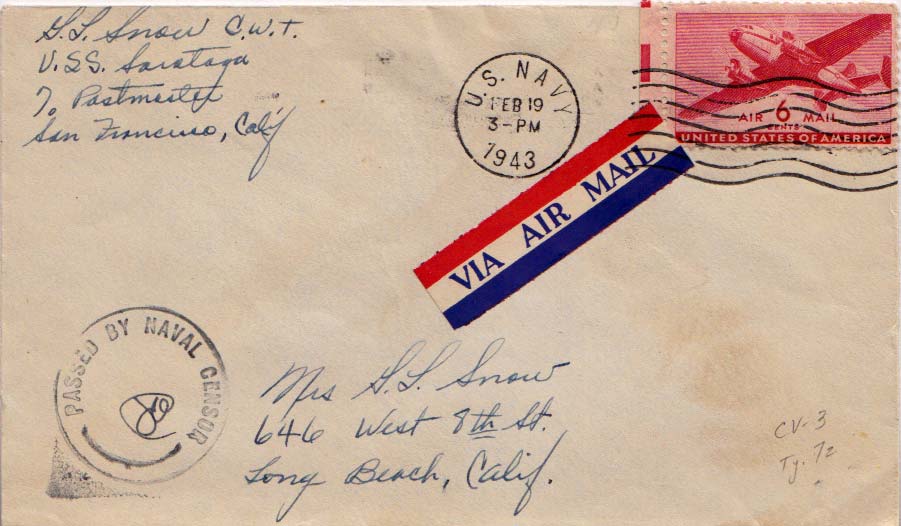 S.L. Snow C.W.T.
U.S.S. Saratoga
% Postmaster
San Francisco, Calif
U.S. NAVY
FEB 19
3-PM
1943
AIR 6 MAIL
CENTS
UNITED STATES OF AMERICA
VIA AIR MAIL
PASSED BY NAVAL CENSOR
Mrs S.L. Snow
646 West 8th St.
Long Beach, Calif.
CV-3
Ty. 7z